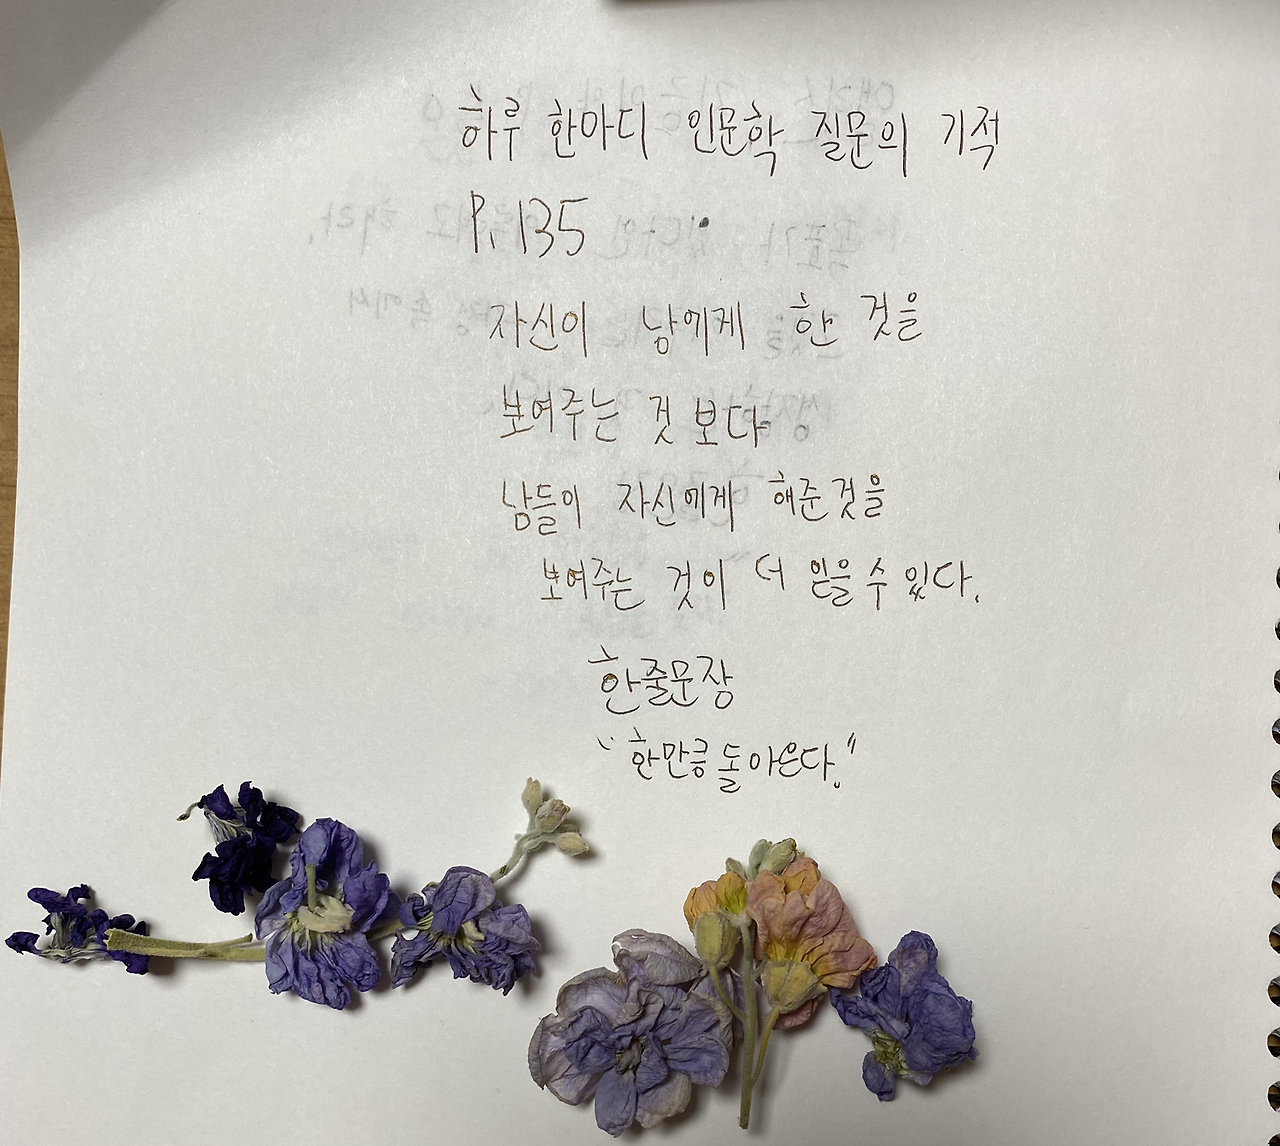 하루 한마디 인문학 질문의 기적
P. 135
자신이 남에게 한 것을
보여주는 것 보다
남들이 자신에게 해준것을
보여주는 것이 더 믿을 수 있다.
한줄문장
"한만큼 돌아온다."